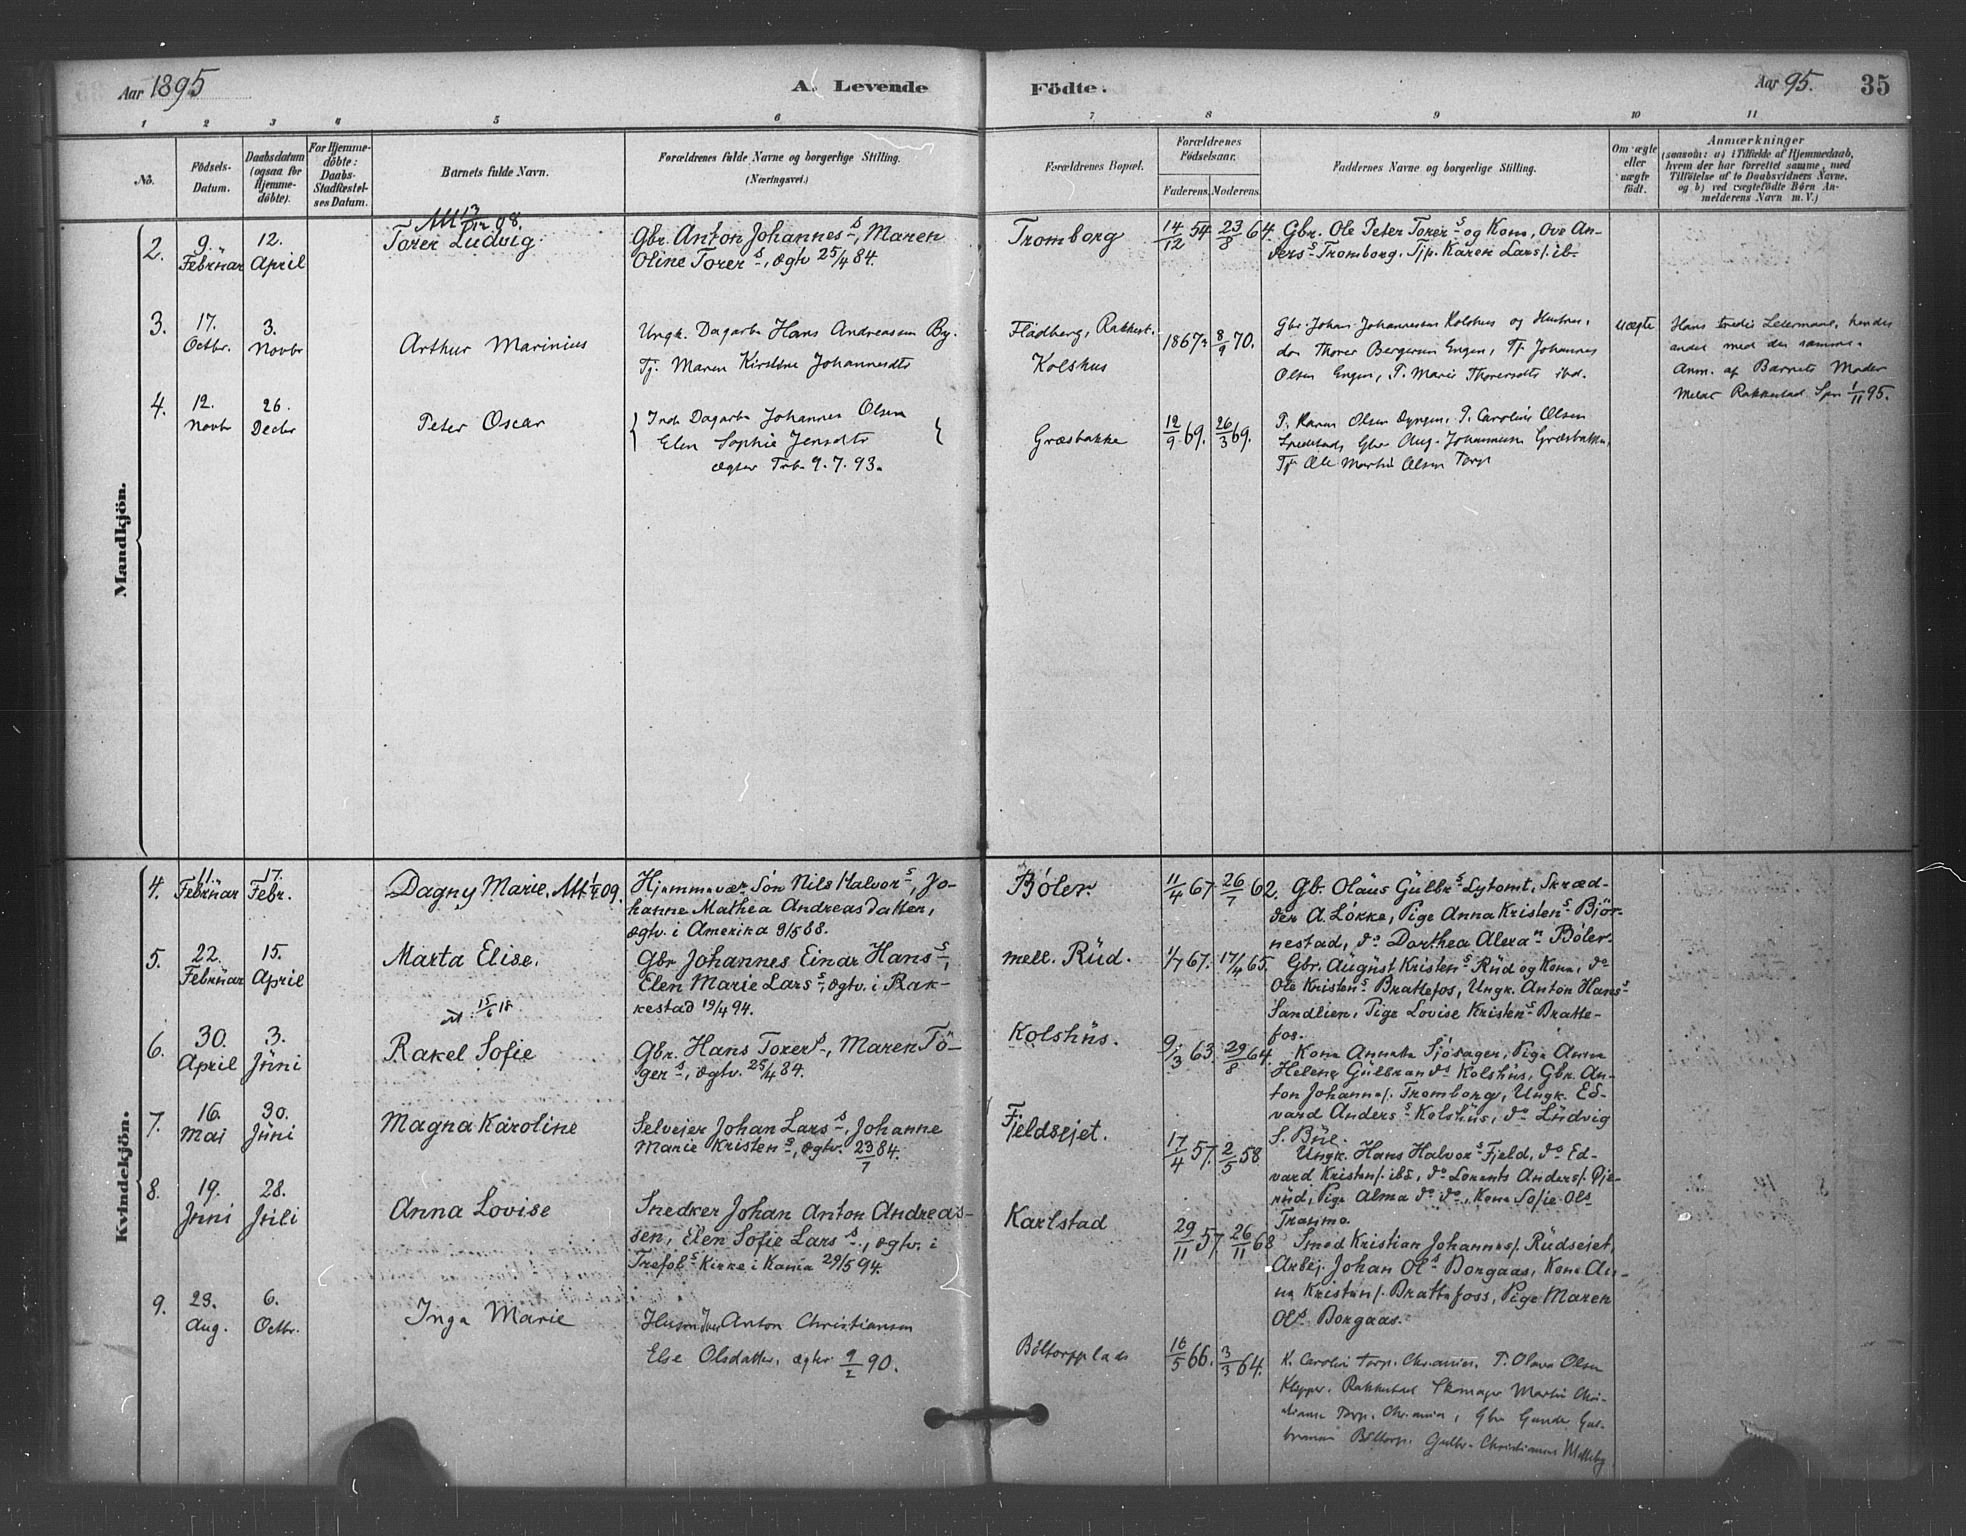 Aar 1895
A. Levende
Födte.
Aar 95.
35
1 2 3 4 5 6 7 8 9 10 11
No.
Födsels-
Datum.
Daabsdatum
(ogsaa for
Hjemme-
döbte).
For Hjemme-
döbte:
Daabs-
Stadfæstel-
ses Datum.
Barnets fulde Navn.
Forældrenes fulde Navne og borgerlige Stilling.
(Næringsvei.)
Forældrenes Bopæl.
Forældrenes
Födselsaar.
Faderens. Moderens.
Faddernes Navne og borgerlige Stilling.
Om ægte
eller
uægte
födt.
Anmærkninger
(saasom: a) i Tilfælde af Hjemmedaab,
hvem der har forrettet samme, med
Tilföielse af to Daabsvidners Navne,
og b) ved uægtefödte Børn An-
melderens Navn m. V.)
Mandkjön.
2.
9.
Februar
12.
April
Att 13/12 08.
Torer Ludvig.
Gbr. Anton Johannes s, Maren
Oline Torer s, ægtv 25/4 84.
Tromborg
14/12 54 23/8 64.
Gbr. Ole Peter Torer s og Kona, Ove An-
ders s Tromborg. Tjp. Karen Lars/. ib.
3.
17.
Octbr.
3.
Novbr
Arthur Marinius
Ungk. Dagarb. Hans Andreassen By.
Tj. Maren Kirstine Johannesdtr
Fladberg, Rakkest.
Kolshus
1867 8/9 70.
Gbr. Johan Johannesen Kolshus og Hustru,
do Thorer Bergersen Engen, Tj. Johannes
Olsen Engen, P. Marie Thorersdtr ibd.
uægte
Hans tredie Leiermaal, hendes
andet med den samme.
Anm. af Barnets Moder
Meldt Rakkestad Spr 1/11 95.
4.
12.
Novbr
26.
Decbr
Peter Oscar
Ind. Dagarb. Johannes Olsen
Elen Sophie Jensdtr
ægtev Trb. 9. 7. 93.
Græsbakke
12/9 69. 26/3 69.
P. Karen Olsen P. Caroline Olsen
Gbr Aug. Johannesen Græsbakke,
Tj. Ole Martin Olsen Torp
Kvindekjön.
4.
11.
Februar
17.
Febr.
Dagny Marie. Att 1/5 09.
Hjemmevær. Søn Nils Halvor s, Jo-
hanne Mathea Andreasdatter,
ægtv. i Amerika 9/5 88.
Böler
11/4 67. 26/7 62.
Gb. Olaus Gulbr s Lytomt, Skræd-
der A. Løkke, Pige Anna Kristen s Bjør-
nestad, do Dorthea Alexa n Böler.
5.
22.
Februar
15.
April
Marta Elise.
Gbr Johannes Einar Hans s,
Elen Marie Lars s, ægtv. i Rak-
kestad 19/4 94.
mell. Rud.
1/7 67. 17/4 65.
Gbr. August Kristen s Rud og Kona, do
Ole Kristen s Brattefos, Ungk. Anton Hans s
Sandlien, Pige Lovise Kristen s Bratte-
fos.
6.
30.
April
3.
Juni
att. 15/6 18
Rakel Sofie
Gbr. Hans Torer s, Maren To-
ger s, ægtv. 25/4 84.
Kolshus.
9/3 63. 29/8 64.
Kona Annette Sjøsager, Pige Anna
Helene Gulbrand s Kolshus, Gbr. An-
ton Johann/. Tromborg, Ungk. Ed-
vard Anders s Kolshus, do Ludvig
S. Bue.
7.
16.
Mai
30.
Juni
Magna Karoline
Selveier Johan Lars s, Johanne
Marie Kristen s, ægtv. 23/7 84.
Fjeldsejet.
17/4 57. 2/5 58.
Ungk. Hans Halvor s Fjeld, do Ed-
vard Kristen/. ibd, do Lorents Anders/. Gje-
rud, Pige Alma do do, Kona Sofie Ols
Trasimo.
8.
19.
Juni
28.
Juli
Anna Lovise
Snedker Johan Anton Andreas-
sen, Elen Sofie Lars s, ægtv. i
Trefol s Kirke i Kania 29/5 94.
Karlstad
29/11 57. 26/11 68
Smed Kristian Johannes/. Rudseiet,
Arbej. Johan Ol s Borgaas, Kona An-
na Kristen/. Brattefoss, Pige Maren
Ol s Borgaas.
9.
23.
Aug.
6.
Octbr.
Inga Marie
Husm Anton Christiansen
Else Olsdatter, ægtev 9/2 90.
Böltorpplads
16/5 66. 3/3 64.
K. Caroline Torp. Chr.ania. P. Olava Olsen
Klypper. Rakkestad Skomager Martin Chri-
stiansen Torp. Chr.ania, Gbr Gunder Gul-
bransen Böltorp. Gulbr. Christiansen Melleby.